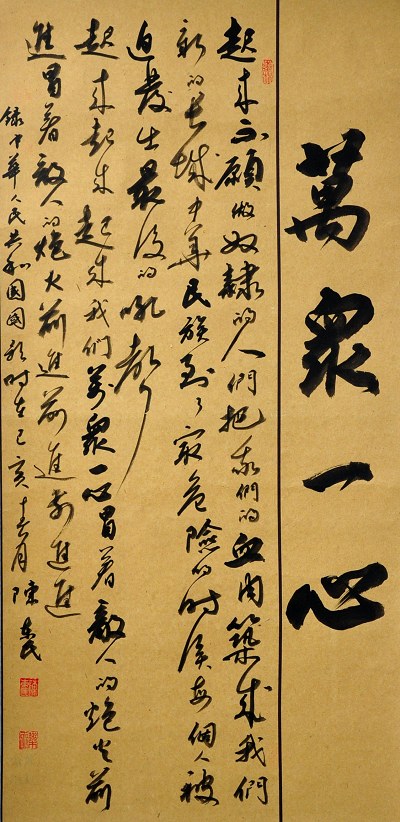 萬眾一心
起來不願做奴隸的人們把我們的血肉築成我們
新的長城中華民族到了最危險的時候每個人被
迫發出最後的吼聲
起來起來起來我們萬眾一心冒着敵人的炮火前
進冒着敵人的炮火前進前進前進進
錄中華人民共和国國歌時在己亥月陳民